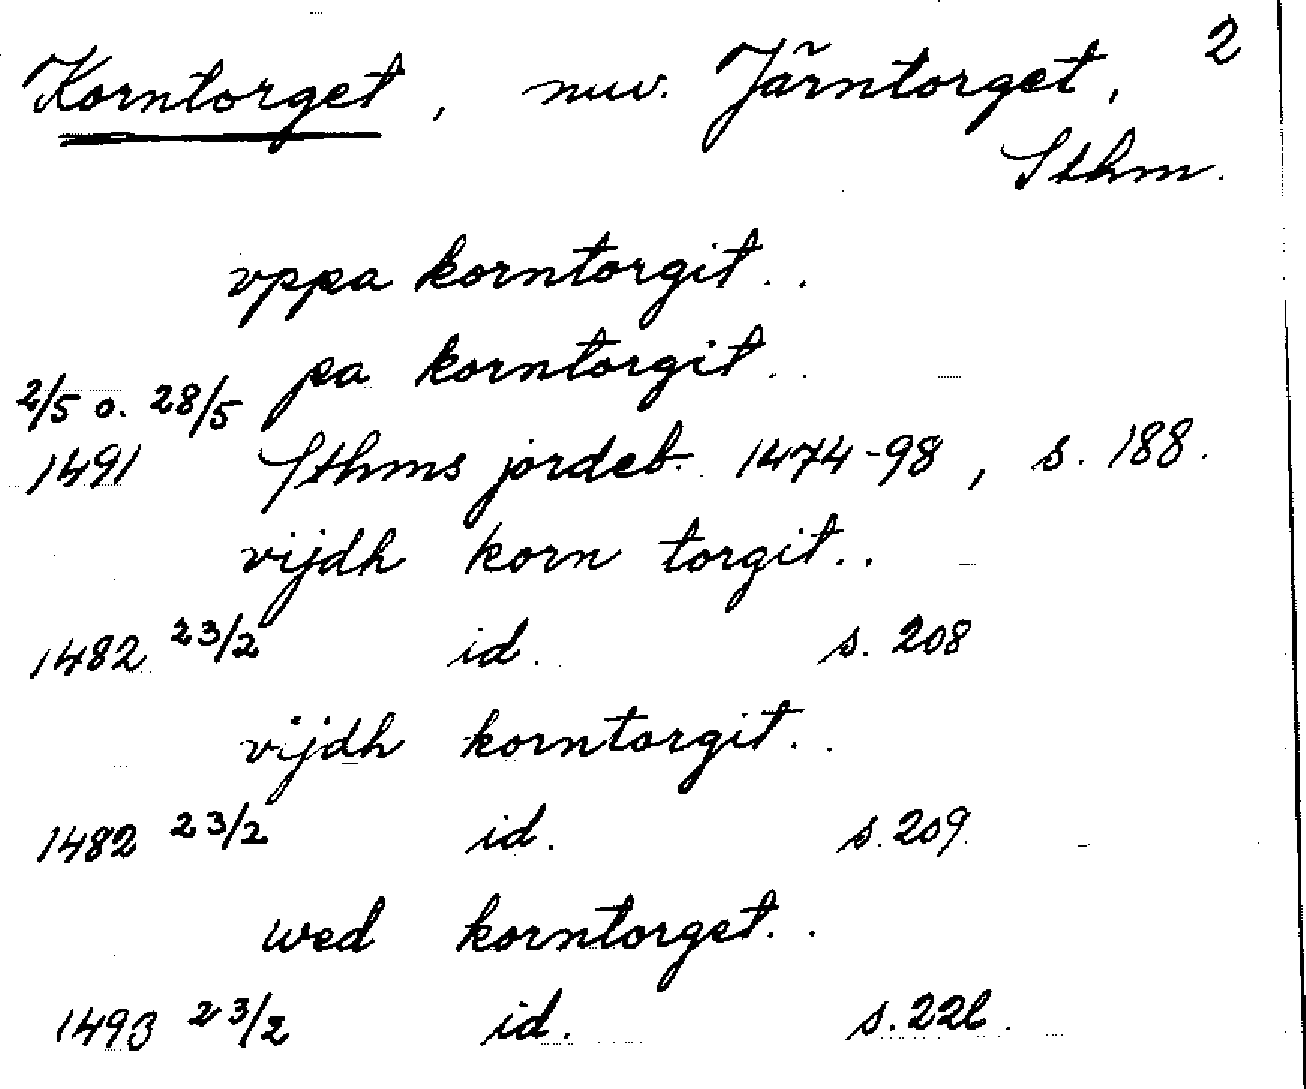 2
Korntorget, nuv. Järntorget,
Sthm.
vppa korntorgit..
pa korntorgit..
2/5 o. 28/5
1491 Sthms jordeb. 1474-98, s. 188.
vijdh korn torgit..
1482 23/2 id. s. 208
vijdh korntorgit..
1482 23/2 id. s. 209.
wed korntorget..
1493 23/2 id. s. 226.